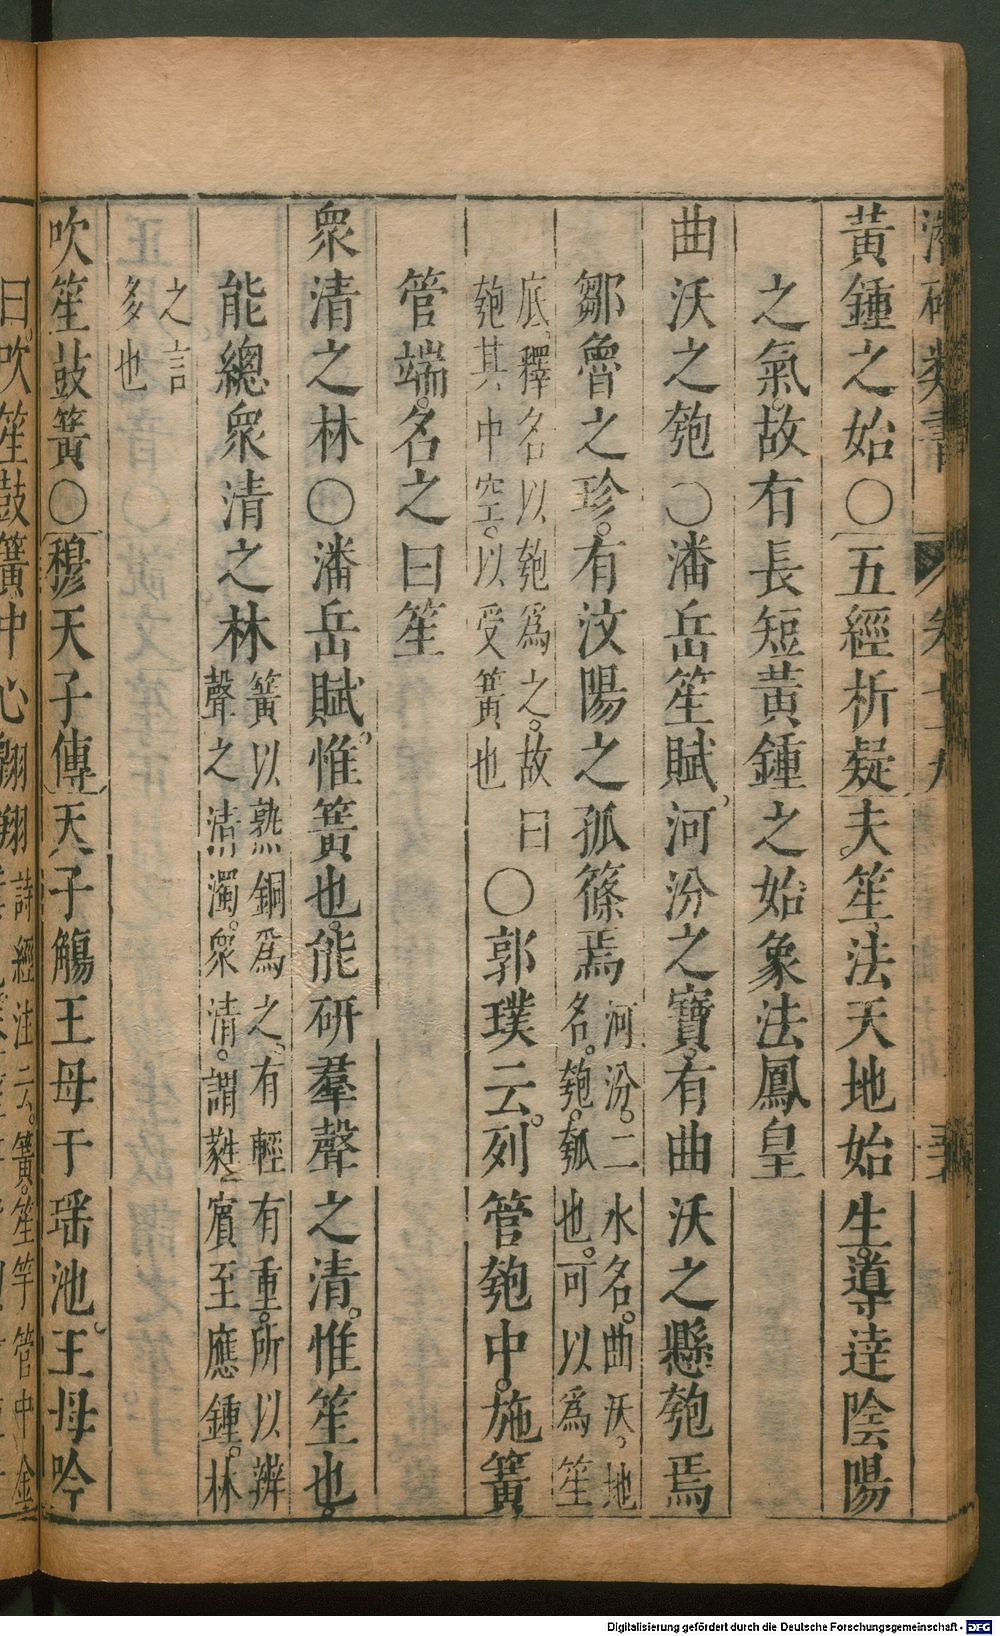 黃鍾之始〇五經析疑夫笙法天地始生導達陰陽
之氣故有長短黃鍾之始象法鳳皇
曲沃之匏〇潘岳笙賦河汾之寶有曲沃之懸匏焉
鄒魯之珍有汶陽之孤篠焉河汾二水名曲沃地
名匏瓠也可以爲笙
底釋名以匏爲之故曰
匏其中空以受簧也〇郭璞云列管匏中施簧
管端名之曰笙
衆清之林〇潘岳賦惟簧也能研羣聲之清惟笙也
能總衆清之林簧以熟銅爲之有輕有重所以辨
聲之清濁衆清謂蕤賓至應鍾林
之言
多也
吹笙鼓簧〇穆天子傳天子觴王母于瑶池王母吟
曰吹笙鼓簧中心翱翔詩經注云簧笙竽管中金
Digitalisierung gefördert durch die Deutsche Forschungsgemeinschaft - DFG